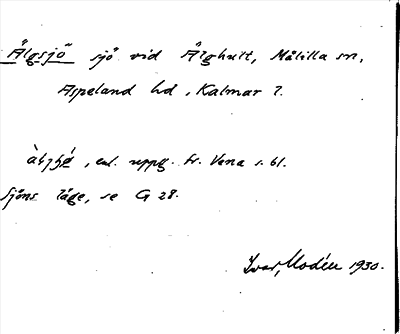 Älgsjö sjö vid Älghult, Målilla sn,
Aspeland hd, Kalmar l.
, enl. uppg. fr. Vena s. 61.
Sjöns läge, se G 28.
Ivar Modéer 1930.